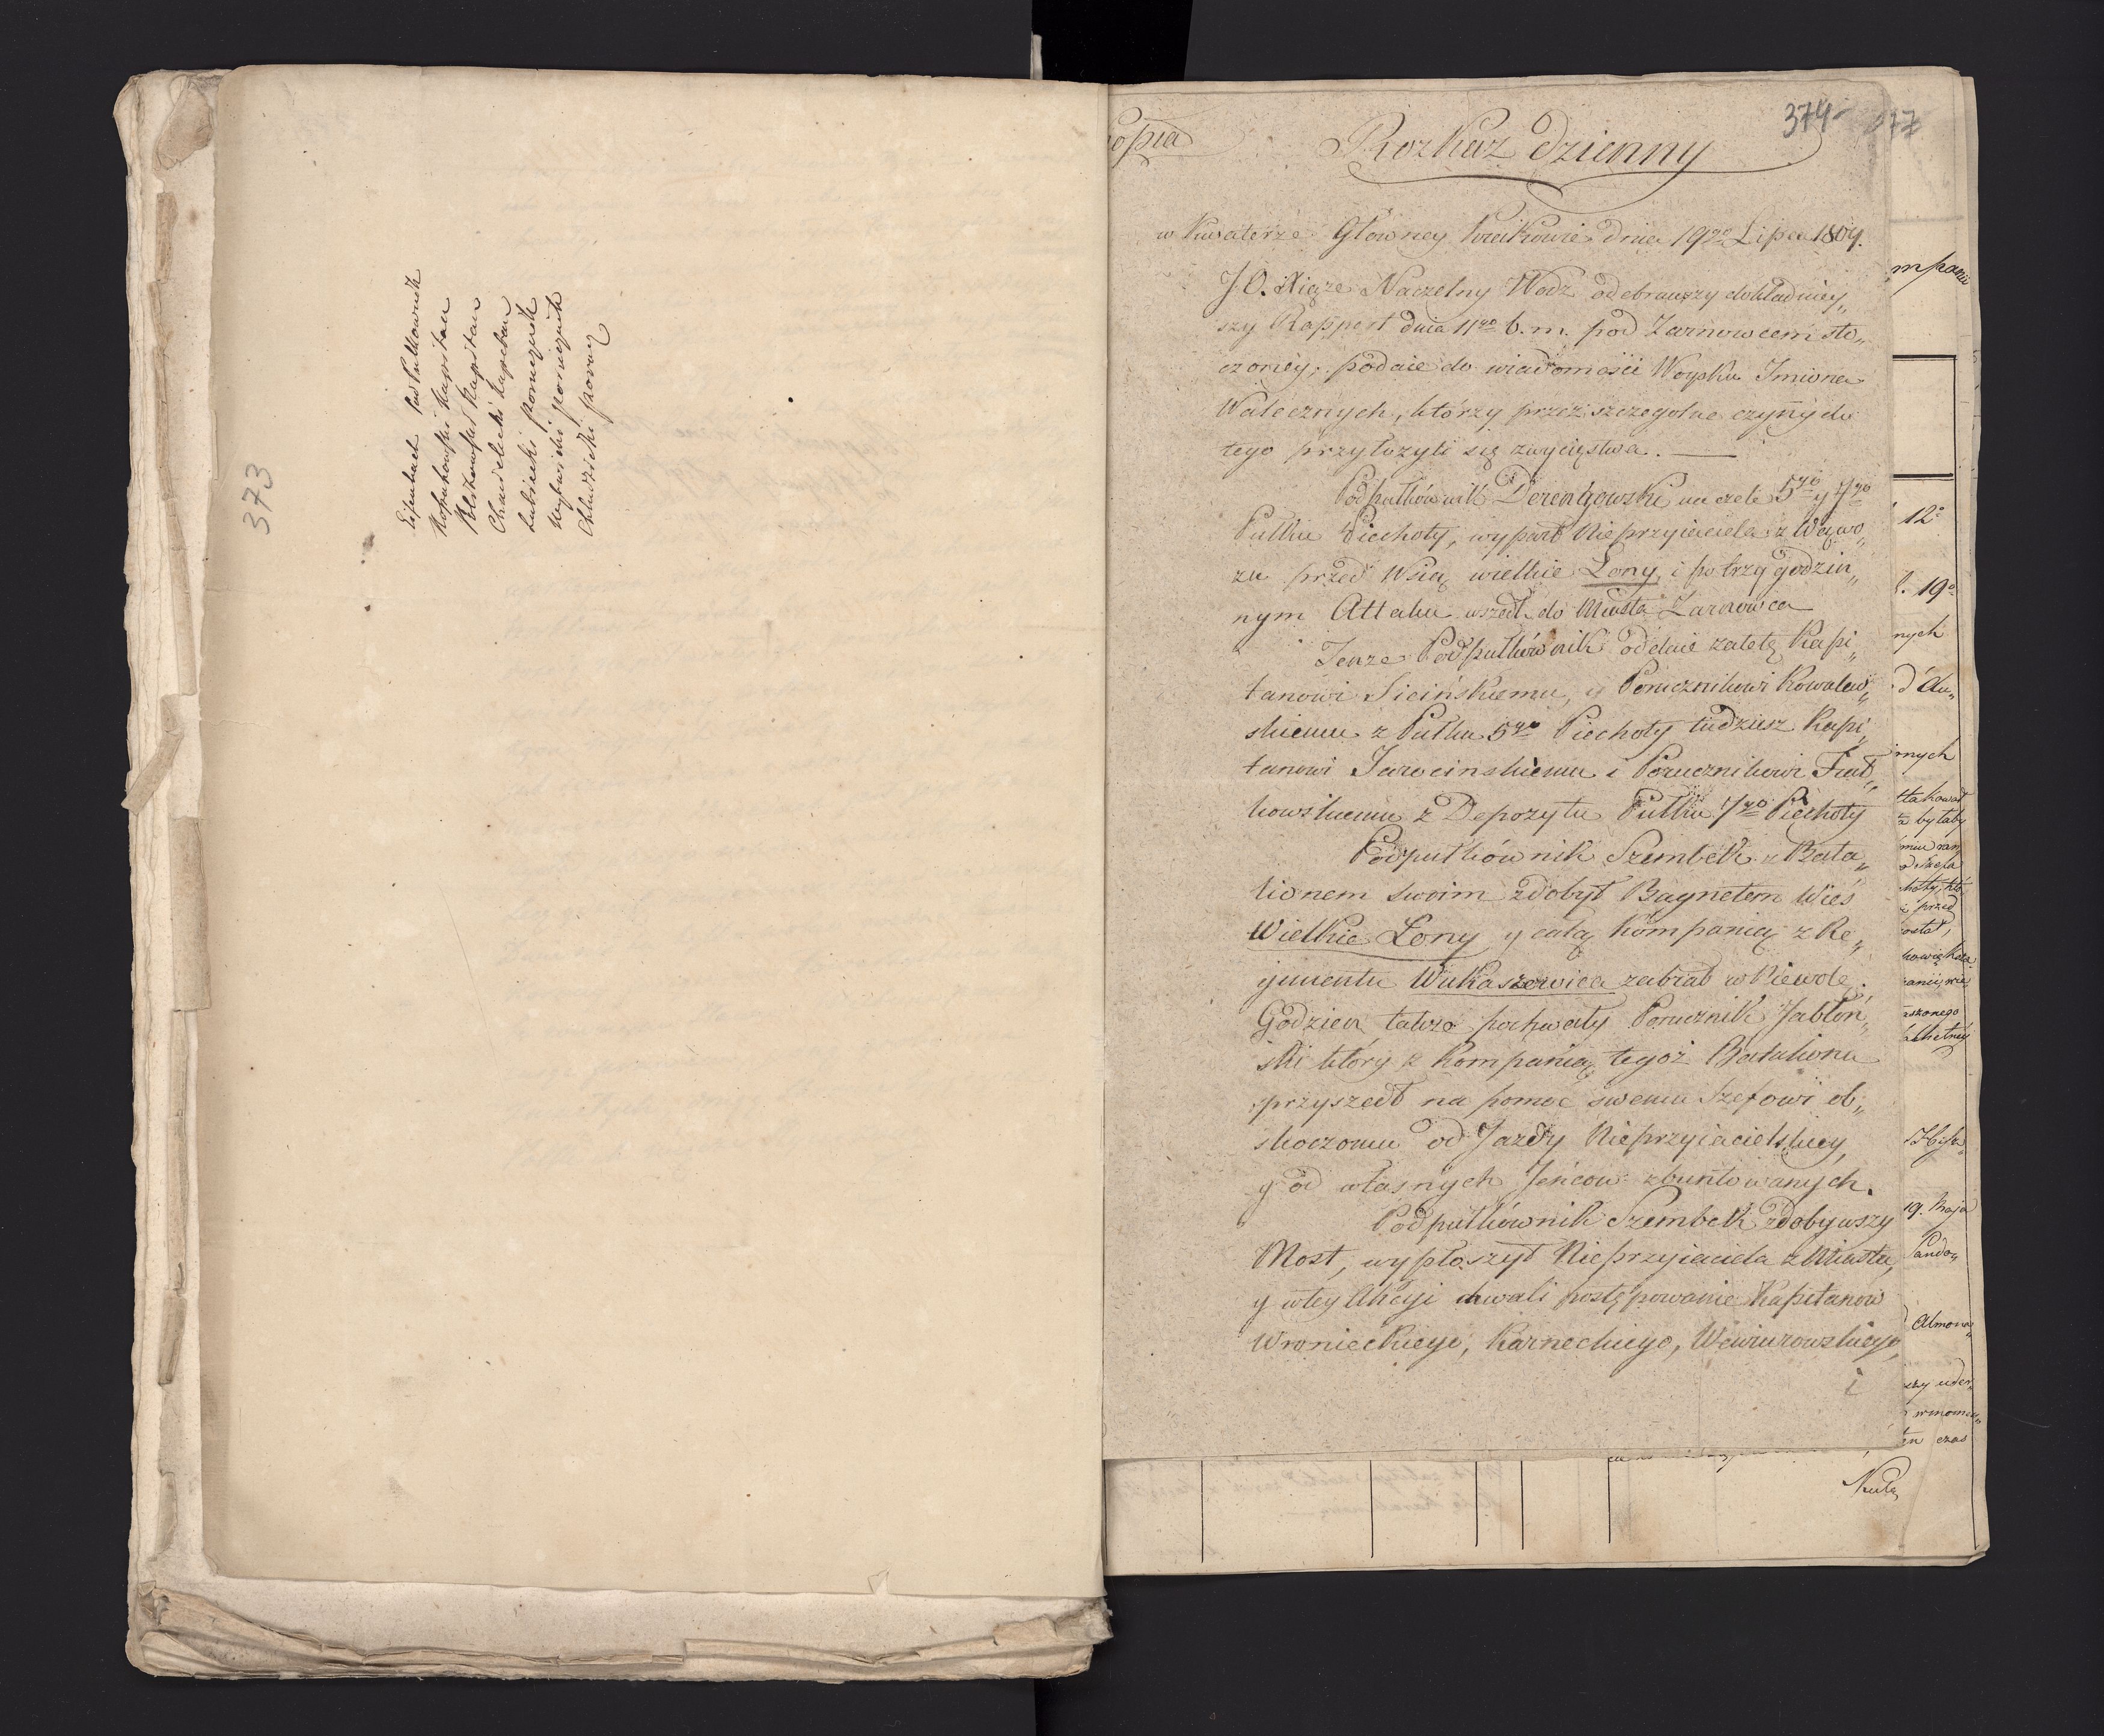 373
Kapitan
Kapitan
porucznik
porucznik
374
opia
Rozkaz Dzienny
w Kwaterze Główney Krakowie dnia 19go Lipca 1809.
J.O. Xiąze Naczelny Wodz odebrawszy dokładniey„
szy Rapport dnia 11go b. m. pod Zarnowcem sto„
czoney, podaie do wiadomości Woysku Imiona
Walecznych, którzy przez szczegolne czyny do
tego przyłozyli się zwycięstwa. —
Podpułkównik Derengowski na czele 5go y 7go
Pułku Piechoty, wyparł Nieprzyiaciela z Wąwo„
zu przed Wsią wielkie Lony, i po trzy godzin„
nym Attaku wszedł do Miasta Zarnowca
Tenze Podpułkównik oddaie zaletę Kapi„
tanowi Sicińskiemu, y Porucznikowi Kowalew„
skiemu z Pułku 5go Piechoty tudziesz Kapi„
tanowi Jarocinskiemu i Porucznikowi Fiał„
kowskiemu z Depozytu Pułku 7go Piechoty
Podpułkównik Szembek z Bata„
lionem swoim zdobył Bagnetem Wieś
Wielkie Lony y całą kompanią z Re„
jmentu Wukaszewica zabrał w Niewolę.
Godzien takze pochwały Porucznik Jabłoń„
ski który z Kompanią tegoż Batalionu
przyszedł na pomoc swemu Szefowi ob„
skoczomu od Jazdy Nieprzyiacielskiey,
y od własnych Jeńcow zbuntowanych.
Podpułkównik Szembek zdobywszy
Most, wypłoszył Nieprzyiaciela z Miasta,
y w tey Akcyi chwali postępowanie Kapitanow
Wronieckiego, Karneckiego, Wewiurowskiego,
i
mpanii
12o
l. 19o
nych
d'Au„
mych
ttakował
byłaby
przed
ostał,
aszonego
19. Maja
Almona„
czas